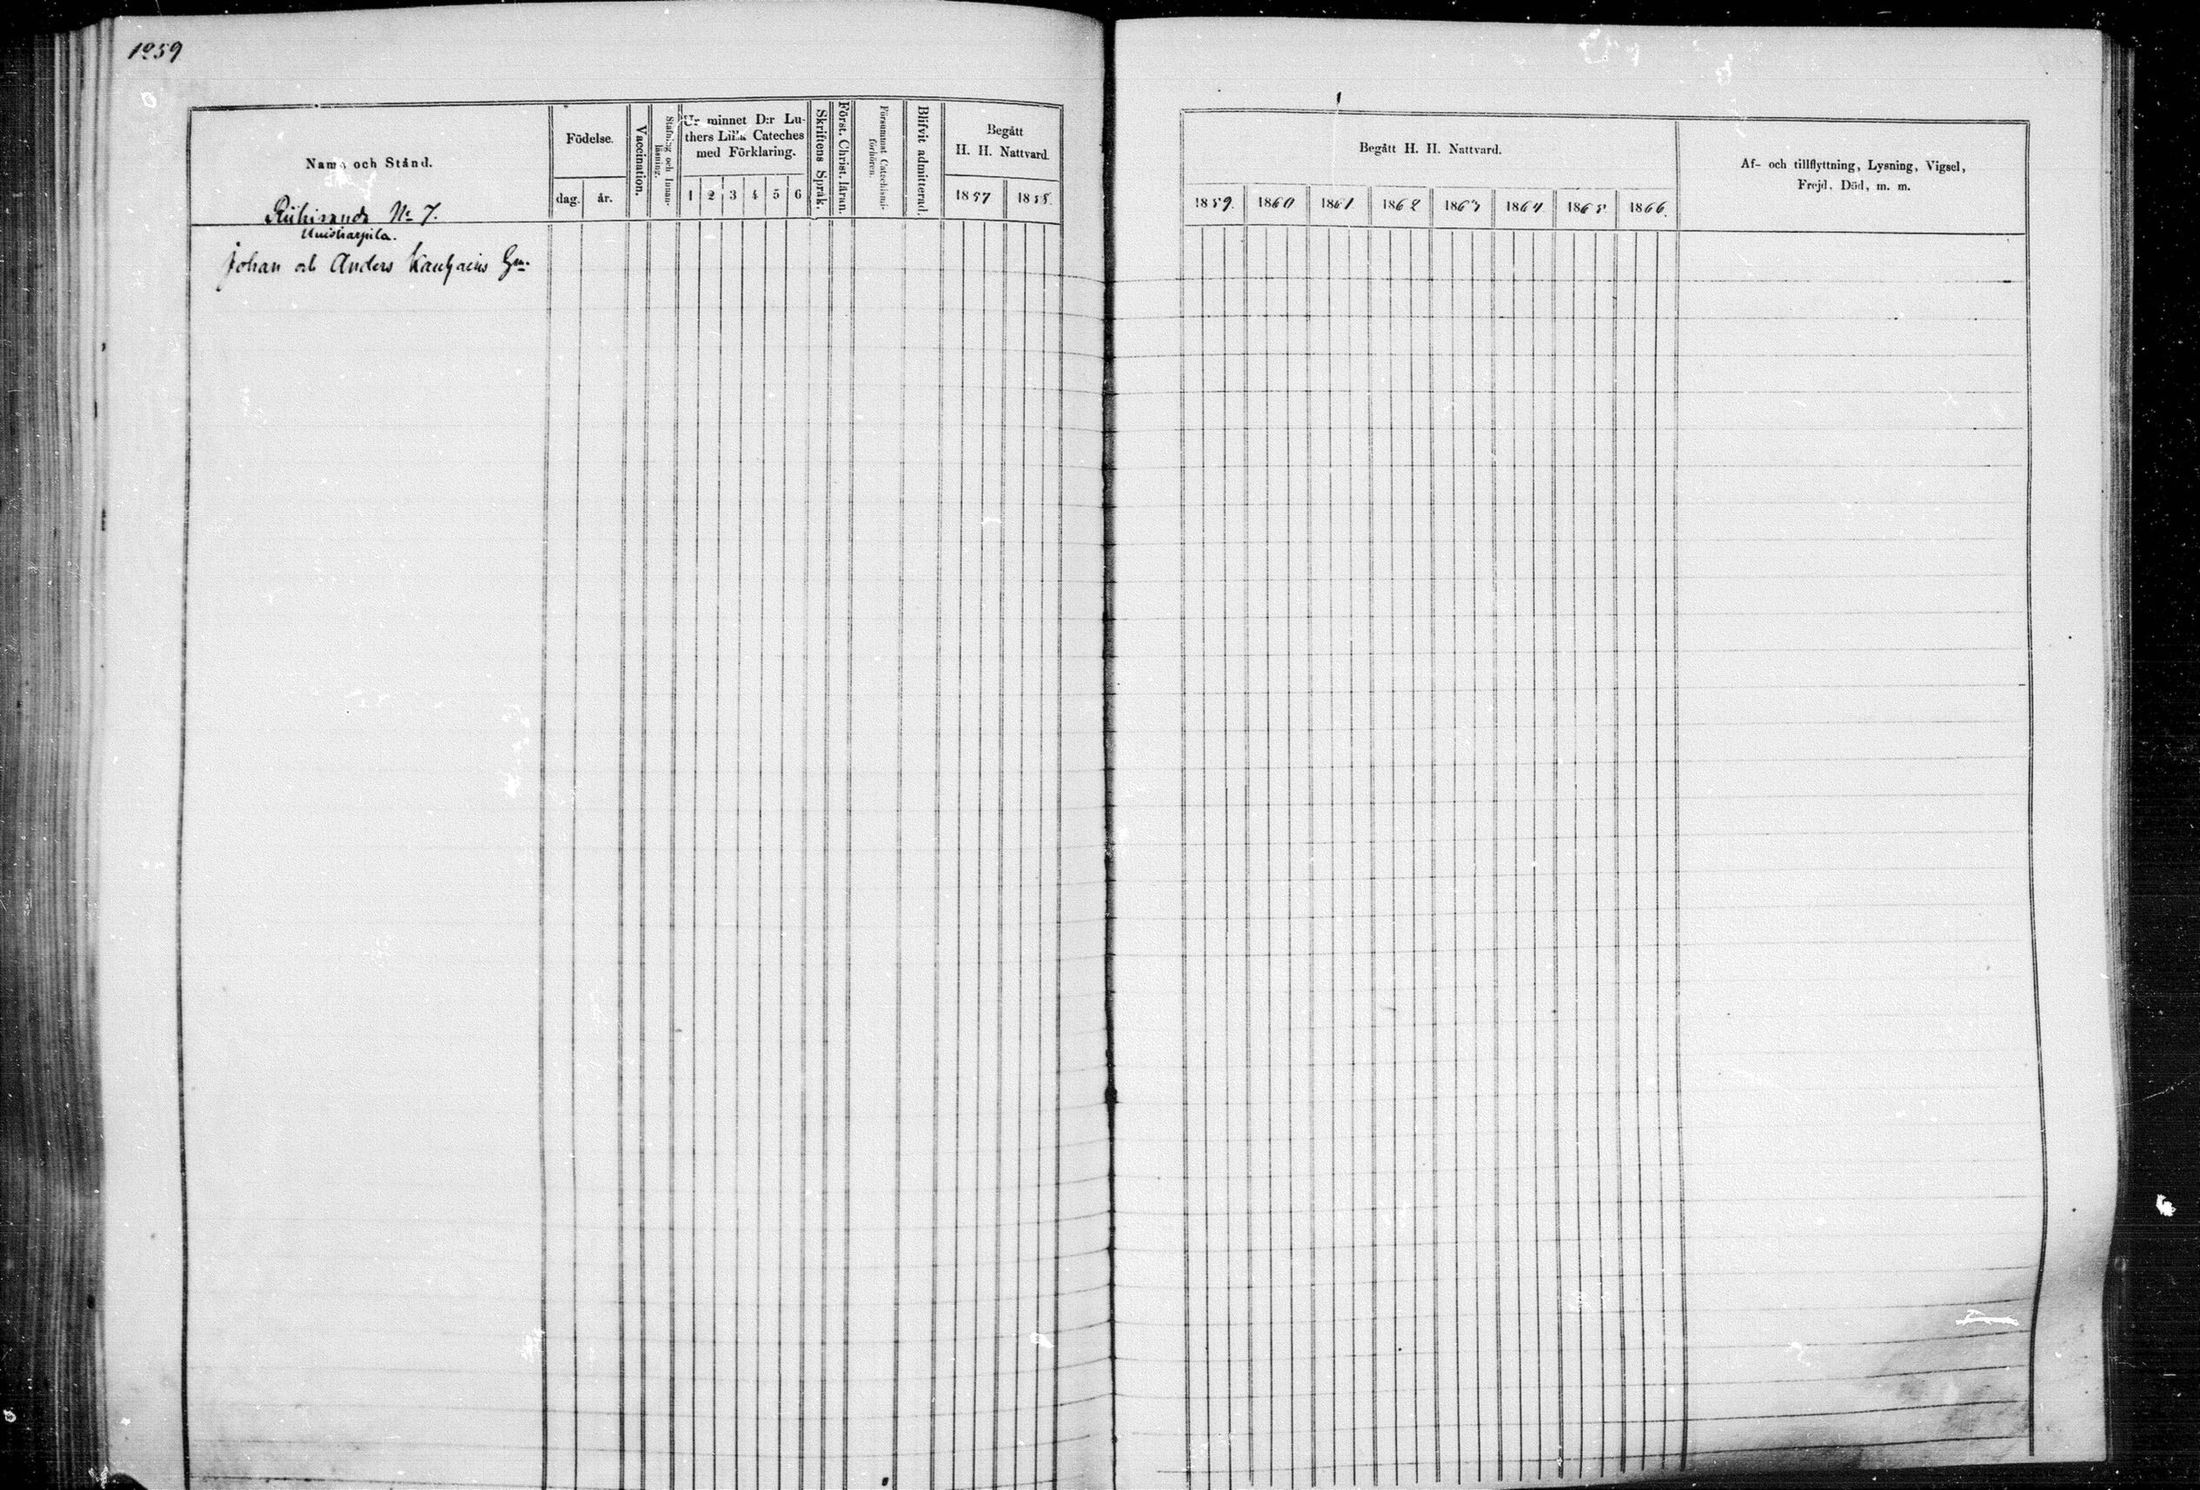 1259
Namn och Stånd.
Födelse.
dag.
år.
Vaccination.
Stafning och Innan-
läsning.
Ur minnet D:r Lu-
thers Lilla Cateches
med Förklaring.
1 2 3 4 5 6
Skriftens Språk.
Först. Christ. läran.
Försummat Catechismi-
förhören.
Blifvit admitterad.
Begått
H. H. Nattvard.
1857 1858.
N:o 7.
Johan och Anders
Begått H. H. Nattvard.
1859. 1860 1861 1862 1863 1864 1865 1866.
Af- och tillflyttning, Lysning, Vigsel,
Frejd, Död, m. m.